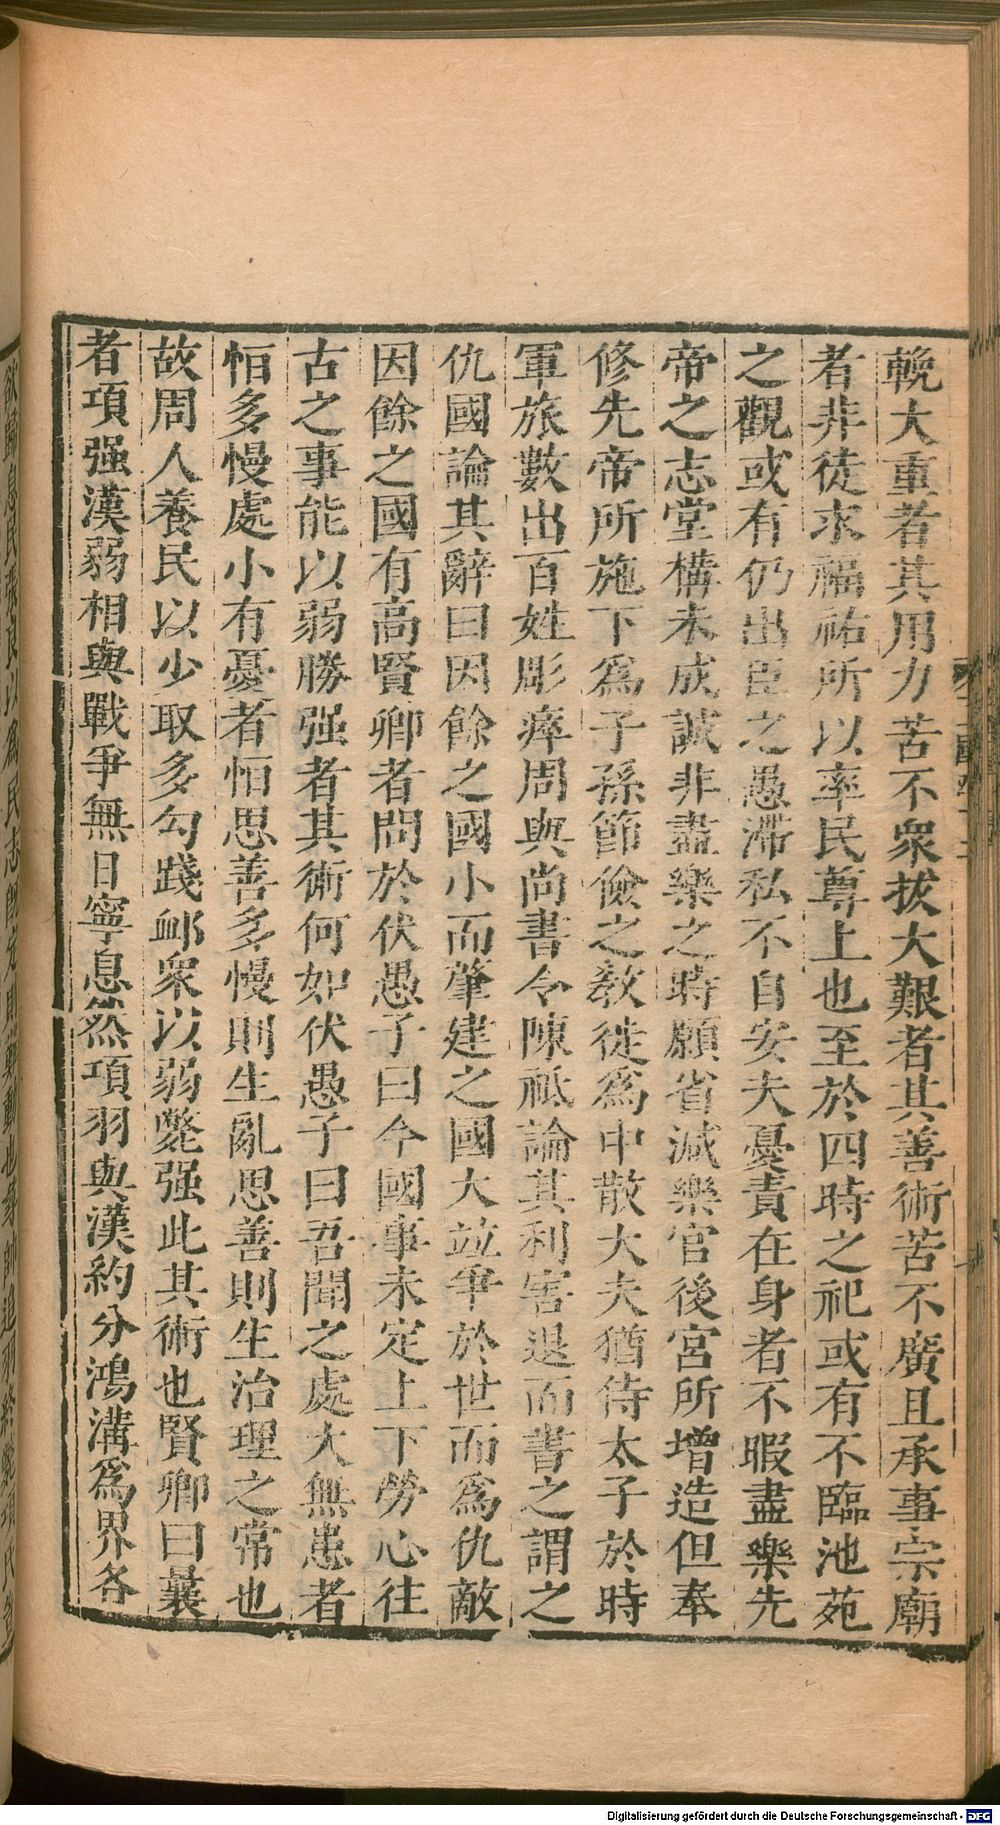 輓大重者其用力苦不衆拔大艱者其善術苦不廣且承事宗廟
者非徒求福祐所以率民尊上也至於四時之祀或有不臨池苑
之觀或有仍出臣之愚滯私不自安夫憂責在身者不暇盡樂先
帝之志堂構未成誠非盡樂之時願省減樂官後宮所增造但奉
修先帝所施下爲子孫節儉之教徙爲中散大夫猶侍太子於時
軍旅數出百姓彫瘁周與尚書令陳祗論其利害退而書之謂之
仇國論其辭曰因餘之國小而肇建之國大竝爭於世而爲仇敵
因餘之國有高賢卿者問於伏愚子曰今國事未定上下勞心往
古之事能以弱勝强者其術何如伏愚子曰吾聞之處大無患者
怕多慢處小有憂者怕思善多慢則生亂思善則生治理之常也
故周人養民以少取多勾踐䘏衆以弱斃强此其術也賢卿曰曩
者項强漢弱相與戰爭無日寧息然項羽與漢約分鴻溝爲界各
Digitalisierung gefördert durch die Deutsche Forschungsgemeinschaft - DFG